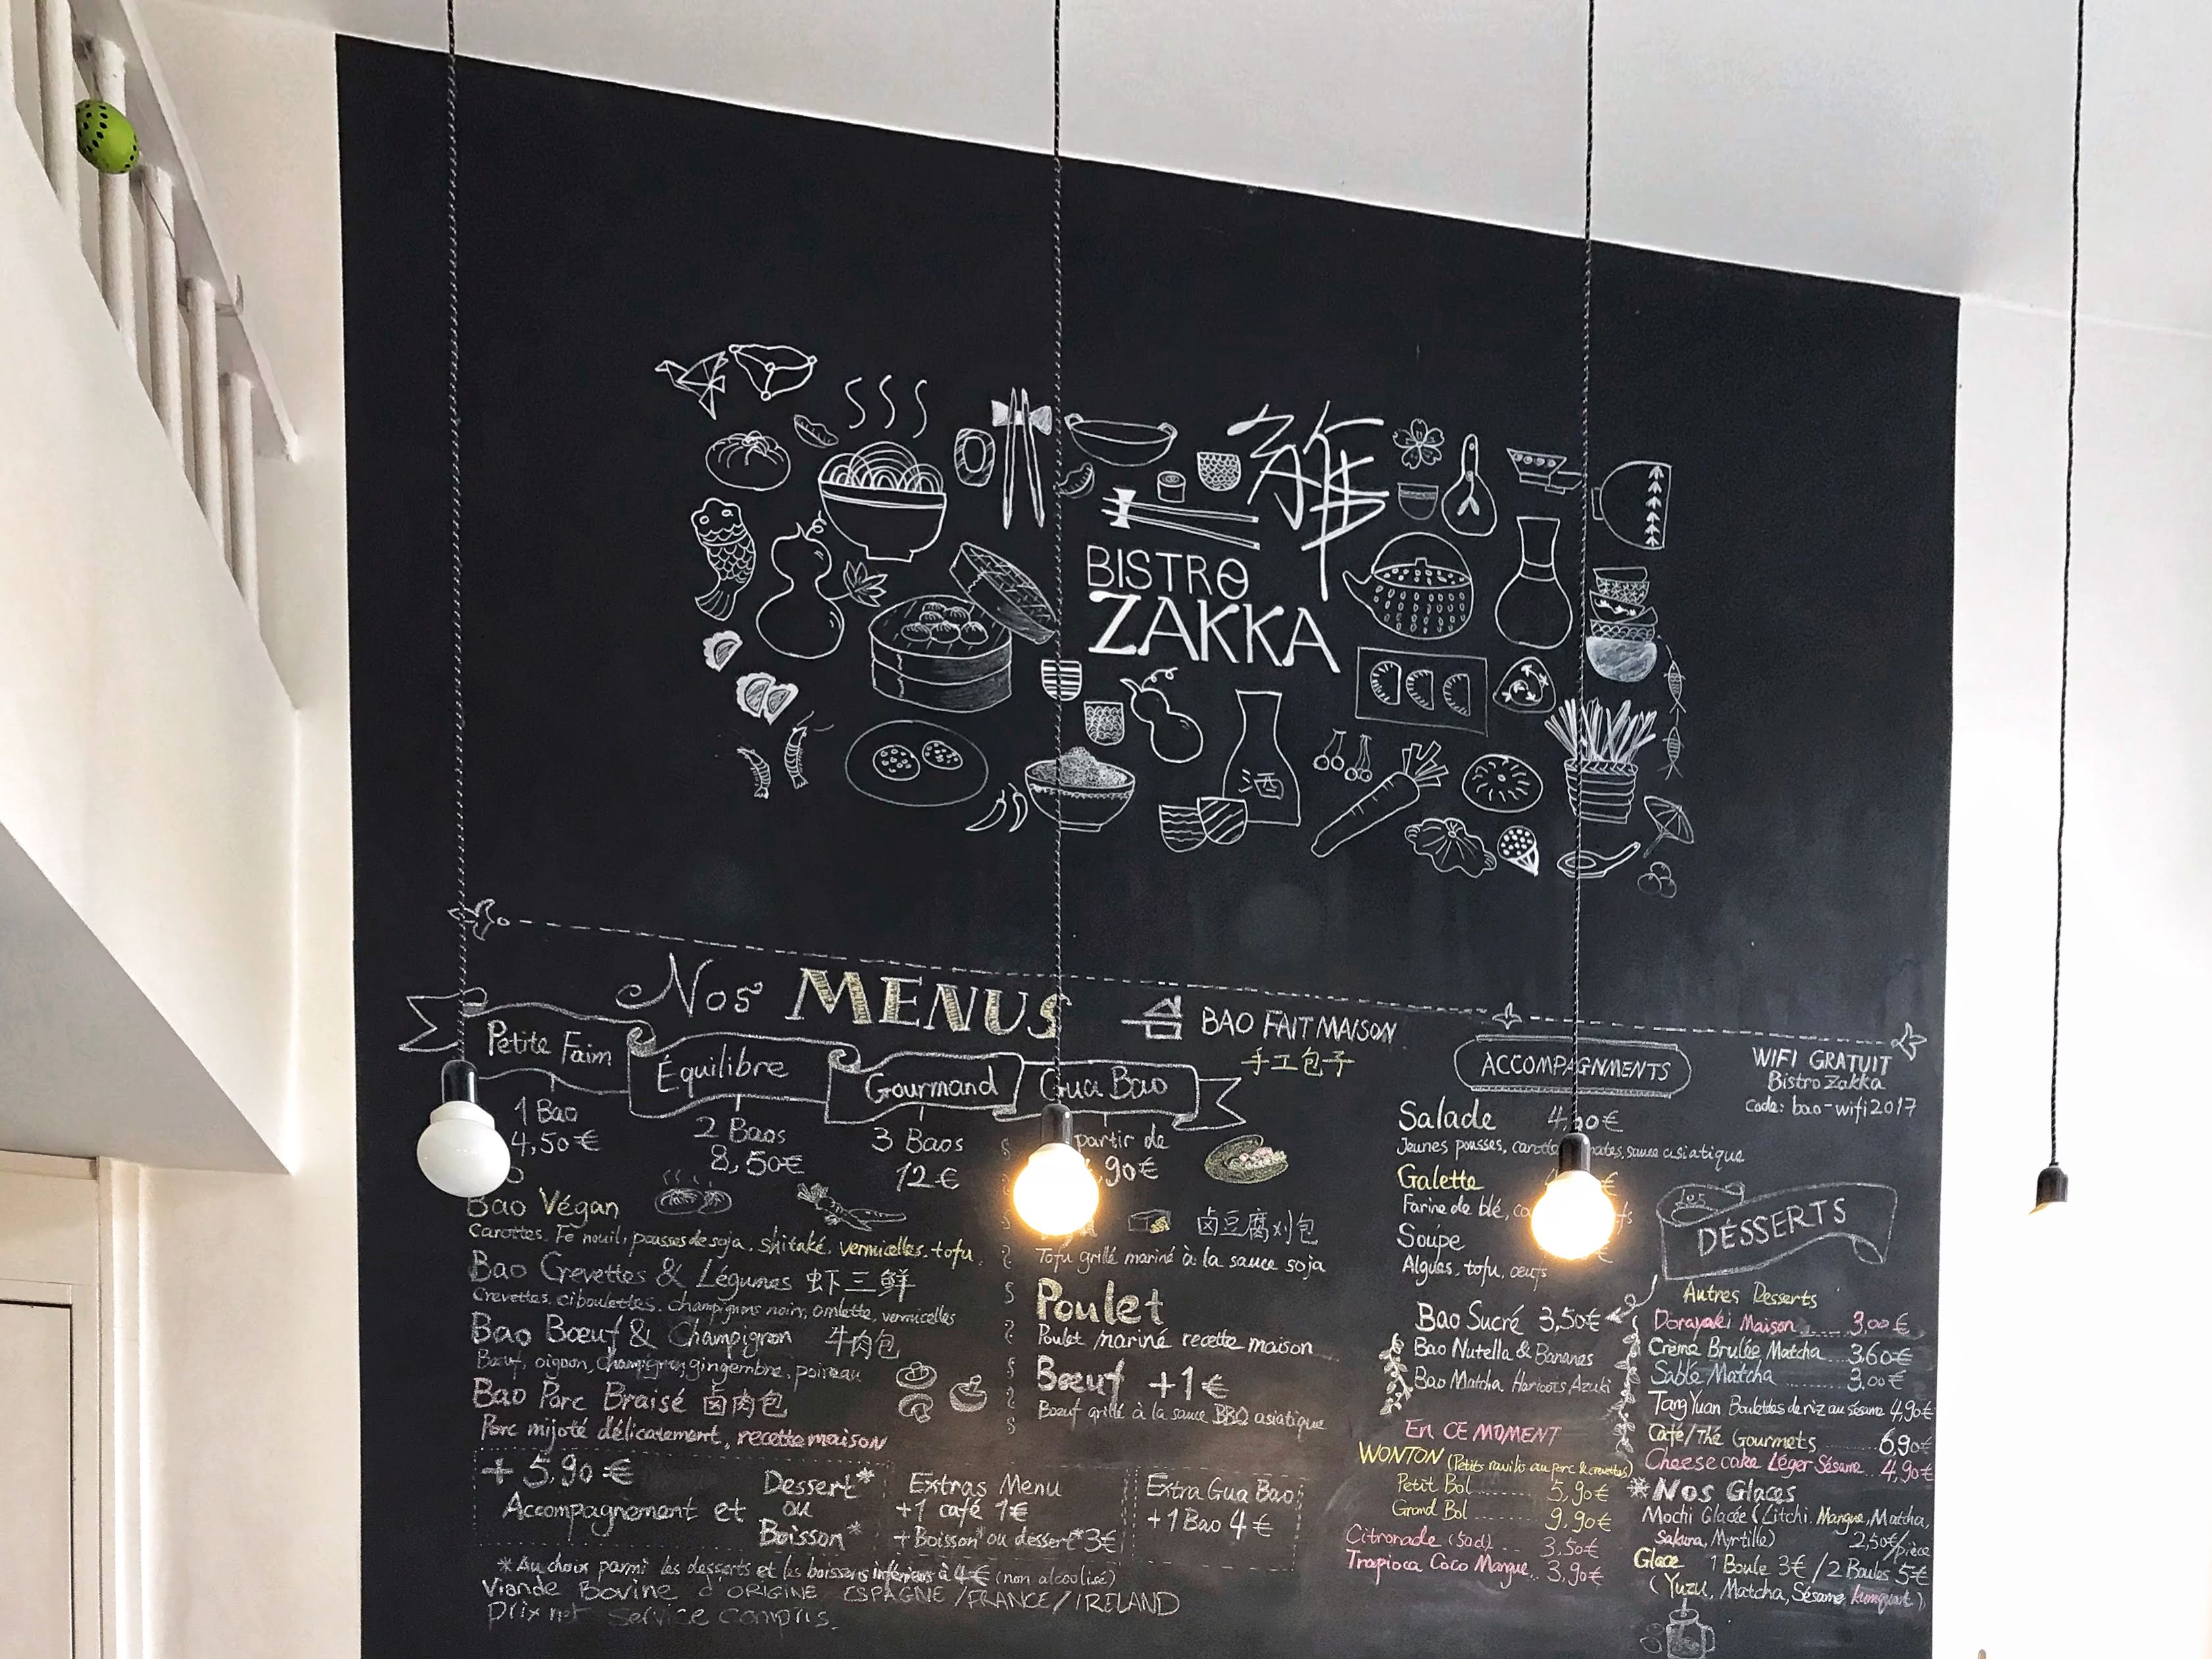 雑
BISTRO
ZAKKA
酒
Nos MENUS
BAO FAIT MAISON
手工包子
Petite Faim
1 Bao
4,50€
Équilibre
2 Baos
8,50€
Gourmand
3 Baos
12€
Gua Bao
partir de
Bao Végan
Carottes, Fenouil, pousses de soja, shitaké, vermicelles, tofu.
Bao Crevettes & Légumes 虾三鲜
Crevettes, ciboulettes, champignons noirs, omlette, vermicelles
Bao Bœuf & Champignon 牛肉包
Bœuf, oignon, champignon, gingembre, poireau
Bao Porc Braisé 卤肉包
Porc mijoté délicatement, recette maison
卤豆腐刈包
Tofu grillé mariné à la sauce soja
Poulet
Poulet mariné recette maison
Bœuf +1€
Bœuf grillé à la sauce BBQ asiatique
+ 5,90€
Accompagnement et
Dessert*
ou
Boisson*
Extras Menu
+1 café 1€
+ Boisson* ou dessert* 3€
Extra Gua Bao:
+1 Bao 4€
* Au choix parmi les desserts et les boissons inférieurs à 4€ (non alcoolisé)
Viande Bovine d'ORIGINE ESPAGNE/FRANCE/IRELAND
Prix net service compris.
ACCOMPAGNMENTS
Salade
Jeunes pousses, sauce asiatique
Galette
Farine de blé,
Soupe
Algues, tofu, œufs
Bao Sucré 3,50€
Bao Nutella & Bananes
Bao Matcha Haricots Azuki
En CE MOMENT
WONTON (Petits raviolis au porc & crevettes)
Petit Bol........ 5,90€
Grand Bol 9,90€
Citronade (50cl) ..... 3,50€
Trapioca Coco Mangue.. 3,90€
WIFI GRATUIT
Bistro Zakka
Code: bao-wifi2017
Les
DÉSSERTS
Autres Desserts
Dorayaki Maison ...... 3,00€
Crème Brulée Matcha ... 3,60€
Sablé Matcha ........ 3,00€
Tang Yuan Boulettes de riz au sésame 4,90€
Café/Thé Gourmets ....... 6,90€
Cheese cake Léger Sésame... 4,90€
*Nos Glaces
Mochi Glacée (Litchi, Mangue, Matcha,
Sakura, Myrtille) 2,50€/pièce
Glace 1 Boule 3€ / 2 Boules 5€
(Yuzu, Matcha, Sésame, kumquat)